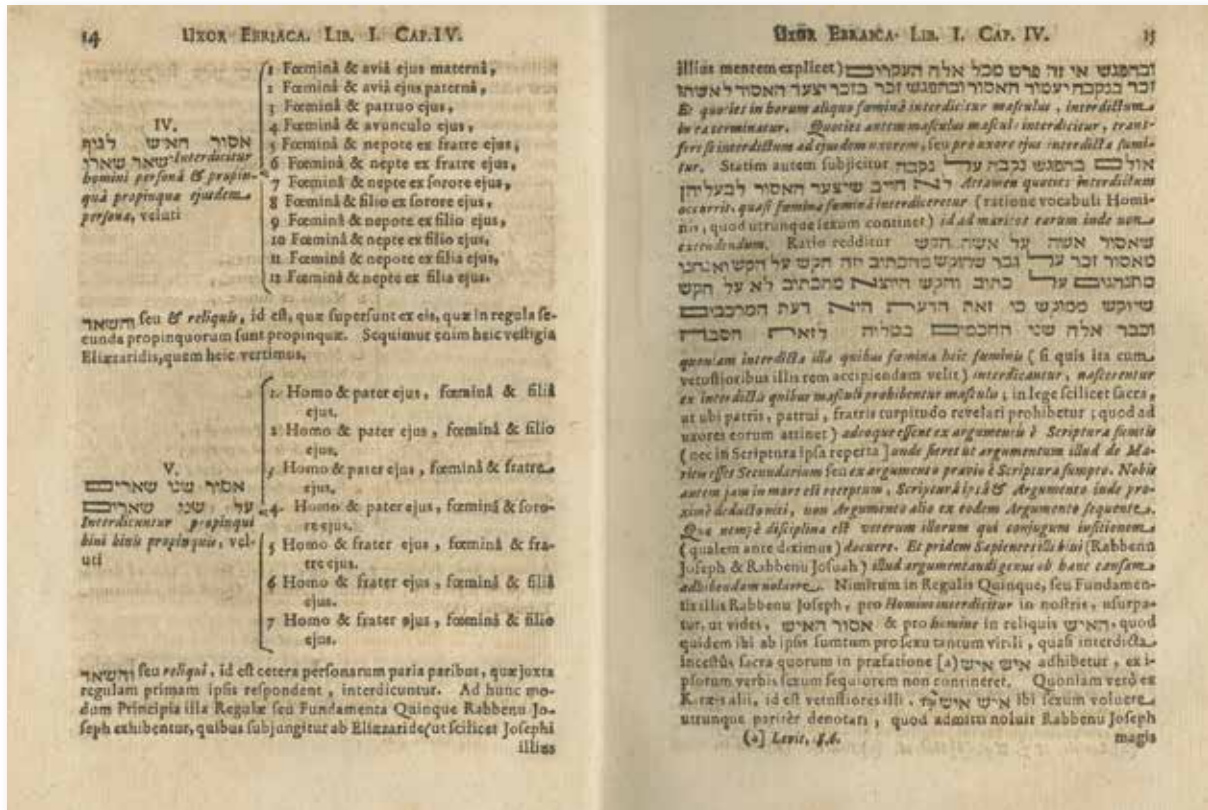 14 UXOR EBRIACA. LIB. I. CAP. IV.
IV.
אסור האיש לגוף
שאר שארו Interdicitur
homini personâ & propin-
quâ propinqua ejusdem
personæ, veluti
1 Fœminâ & aviâ ejus maternâ,
2 Fœminâ & aviâ ejus paternâ,
3 Fœminâ & patruo ejus,
4 Fœminâ & avunculo ejus,
5 Fœminâ & nepote ex fratre ejus,
6 Fœminâ & nepte ex fratre ejus,
7 Fœminâ & nepte ex sorore ejus,
8 Fœminâ & filio ex sorore ejus,
9 Fœminâ & nepote ex filio ejus,
10 Fœminâ & nepte ex filio ejus,
11 Fœminâ & nepote ex filia ejus,
12 Fœminâ & nepte ex filia ejus.
והשאר seu & reliquis, id est, quæ supersunt ex eis, quæ in regula se-
cunda propinquorum sunt propinquæ. Sequimur enim heic vestigia
Eliæzaridis, quem heic vertimus.
V.
אסור שני שארים
על שני שארים
Interdicuntur propinqui
bini binis propinquis, vel-
uti
1. Homo & pater ejus, fœminâ & filiâ
ejus.
2 Homo & pater ejus, fœminâ & filio
ejus.
3 Homo & pater ejus, fœminâ & fratre
ejus.
4. Homo & pater ejus, fœminâ & soro-
re ejus.
5 Homo & frater ejus, fœminâ & fra-
tre ejus.
6 Homo & frater ejus, fœminâ & filiâ
ejus.
7 Homo & frater ejus, fœminâ & filio
ejus.
והשאר seu reliqui, id est cetera personarum paria paribus, quæ juxta
regulam primam ipsis respondent, interdicuntur. Ad hunc mo-
dum Principia illa Regulæ seu Fundamenta Quinque Rabbenu Jo-
seph exhibentur, quibus subjungitur ab Eliæzaride (ut scilicet Josephi
illius
UXOR EBRAICA. LIB. I. CAP. IV. 15
illius mentem explicet) ובהפגש אי זה פרט מכל אלה העקרים
זכר בנקבה יעמוד האסור ובהפגש זכר בזכר יצער האסור לאשתו
Et quoties in horum aliquo fœminâ interdicitur masculus, interdictum
in ea terminatur. Quoties autem masculus masculo interdicitur, trans-
fere se interdictum ad ejusdem uxorem, seu pro uxore ejus interdicta sumi-
tur. Statim autem subjicitur אולם בהפגש נקבה על נקבה
לא חייב שיצער האסור לבעליהן Attamen quoties interdictum
occurrit, quasi fœmina fœminâ interdiceretur (ratione vocabuli Homi-
nis, quod utrunque sexum continet) id ad maritos earum inde non
extendendum. Ratio redditur שאסור אשה על אשה הקש
מאסור זכר על גבר שהוקש מהכתוב וזה הקש על הקש ואנחנו
מתנהגים על כתוב והקש היוצא מהכתוב לא על הקש
שיוקש ממוקש כי זאת הדעת היא דעת המרכבים
וכבר אלה שני החכמים בטליה לזאת הסבה
quoniam interdicta illa quibus fœmina heic fœminis (si quis ita cum
vetustioribus illis rem accipiendam velit) interdicantur, nascerentur
ex interdictis quibus masculi prohibentur masculo; in lege scilicet sacra,
ut ubi patris, patrui, fratris turpitudo revelari prohibetur; quod ad
uxores eorum attinet) adeoque essent ex argumentis è Scriptura sumtis
(nec in Scriptura ipsa reperta] unde fieret ut argumentum illud de Ma-
ritu esset Secundarium seu ex argumento prævio è Scriptura sumpto. Nobis
autem jam in more est receptum, Scripturâ ipsâ & Argumento inde pro-
ximè deducto niti, non Argumento alio ex eodem Argumento sequente.
Quæ nempè disciplina est veterum illorum qui conjugum insitionem
(qualem ante diximus) docuere. Et pridem Sapientes illi bini (Rabbenu
Joseph & Rabbenu Josuah) illud argumentandi genus ob hanc causam
adhibendum noluere. Nimirum in Regulis Quinque, seu Fundamen-
tis illis Rabbenu Joseph, pro Homini interdicitur in nostris, usurpa-
tur, ut vides, אסור האיש & pro homine in reliquis האיש. quod
quidem ibi ab ipso sumtum pro sexu tantum virili, quasi interdicta
Incestûs sacra quorum in præfatione [a] איש איש adhibetur, ex i-
psorum verbis sexum sequiorem non contineret. Quoniam verò ex
Karæis alii, id est vetustiores illi, איש איש ibi sexum voluere
utrunque paritèr denotari, quod admitti noluit Rabbenu Joseph
(a] Levit, 8,6. magis